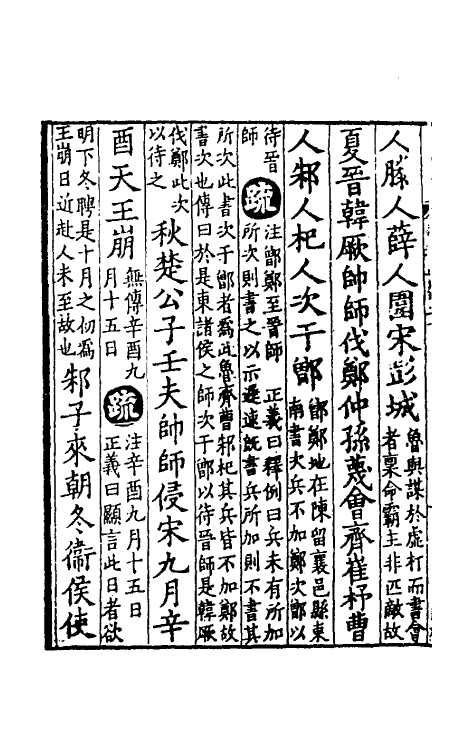 人滕人薛人圍宋彭城魯與謀於虛朾而書會者稟命霸主非匹敵故
夏晉韓厥帥師伐鄭仲孫蔑會齊崔杼曹
人邾人杞人次于鄫鄫鄭地在陳留襄邑縣東南書次兵不加鄭次鄫以
待晉師疏注鄫鄭至晉師　正義曰釋例曰兵未有所加所次則書之以示遲速既書兵所加則不書其
所次此書次于鄫者爲此魯齊曹邾杞其兵皆不加鄭故書次也傳曰於是東諸侯之師次于鄫以待晉師是韓厥
伐鄭此次以待之秋楚公子壬夫帥師侵宋九月辛
酉天王崩無傳辛酉九月十五日疏注辛酉九月十五日　正義曰顯言此日者欲
明下冬聘是十月之初爲王崩日近赴人未至故也邾子來朝冬衞侯使